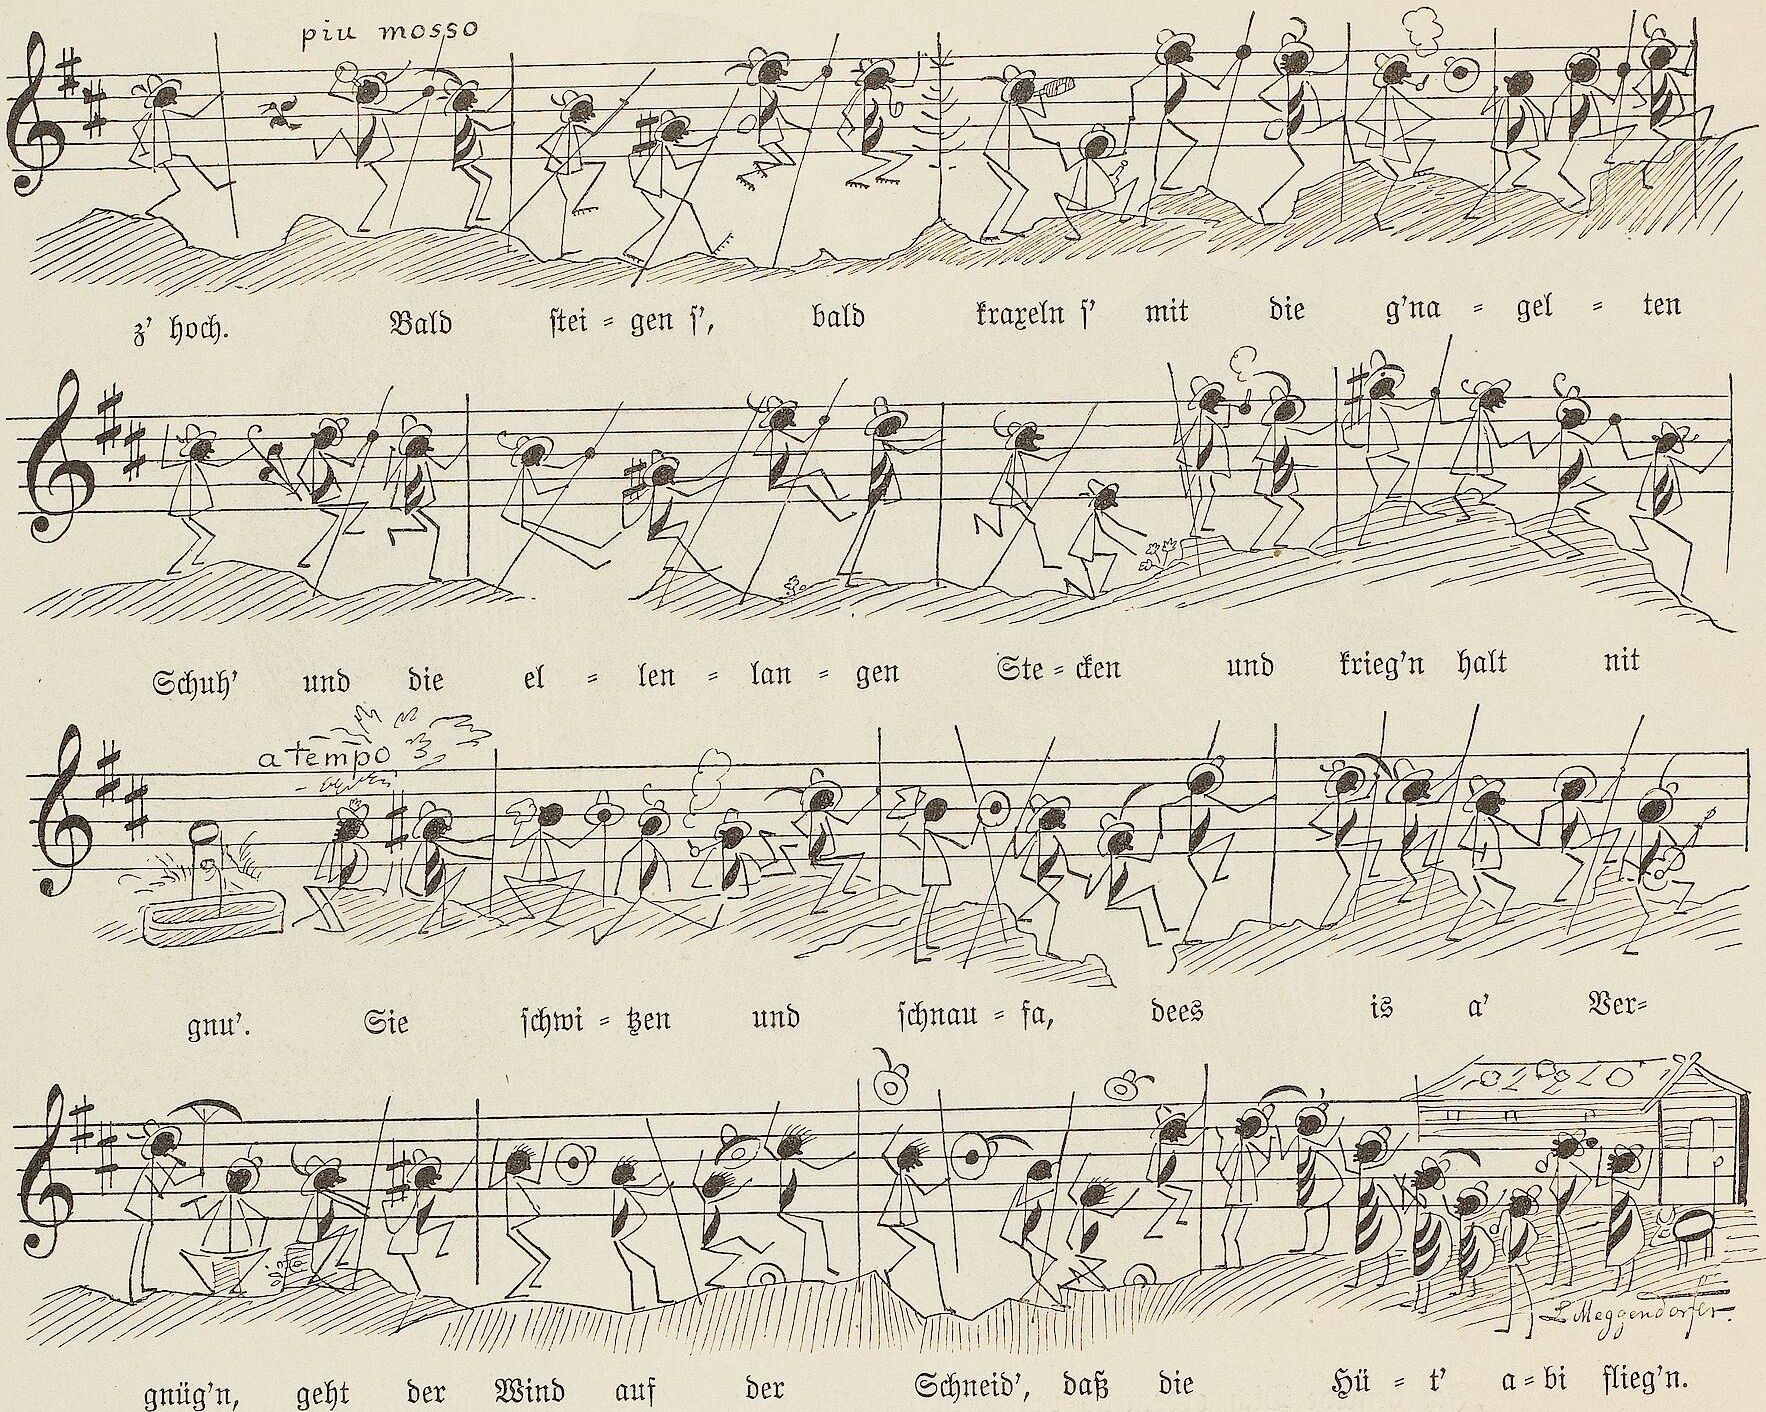 piu mosso
z' hoch. Bald stei = gen s', bald kraxeln s' mit die g'na = gel = ten
Schuh' und die el = len = lan = gen Ste = cken und krieg'n halt nit
a tempo
gnu'. Sie schwi = tzen und schnau = fa, dees is a' Ver=
gnüg'n, geht der Wind auf der Schneid', daß die Hü = t' a = bi flieg'n.
L. Meggendorfer.